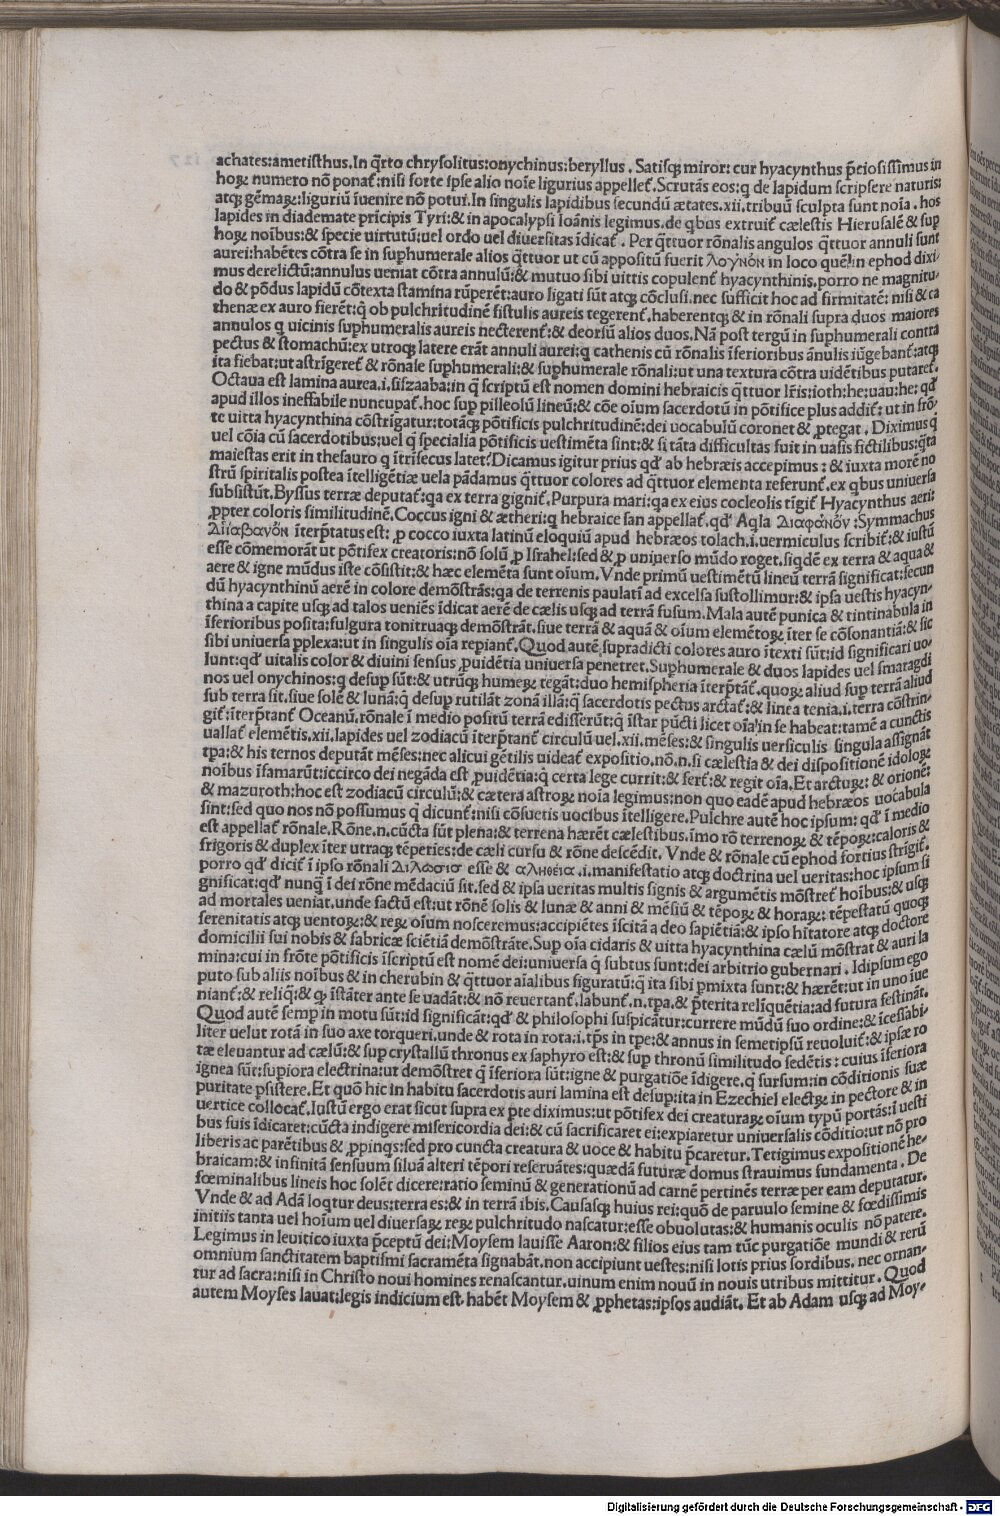 achates:ametisthus.In q̄rto chrysolitus:onychinus:beryllus. Satisq; miror: cur hyacynthus p̄ciosissimus in
hoꝝ numero nō ponat̃: nisi forte ipse alio noīe ligurius appellet̃. Scrutās eos: q de lapidum scripsere naturis:
atq; gēmaꝝ: liguriū īuenire nō potui. In singulis lapidibus secundū ætates.xii.tribuū sculpta sunt noīa. hos
lapides in diademate prīcipis Tyri: & in apocalypsi Ioānis legimus. de qbus extruit̃ cælestis Hierusalē & sup
hoꝝ noībus: & specie uirtutū: uel ordo uel diuersitas īdicat̃. Per q̄ttuor rōnalis angulos q̄ttuor annuli sunt
aurei: habētes cōtra se in suphumerale alios q̄ttuor ut cū appositū fuerit λογιον in loco quē in ephod dixi-
mus derelictū: annulus ueniat cōtra annulū: & mutuo sibi uittis copulent̃ hyacynthinis. porro ne magnitu-
do & pōdus lapidū cōtexta stamina rūperēt: auro ligati sūt atq; cōclusi. nec sufficit hoc ad firmitatē: nisi & ca
thenæ ex auro fierēt: q̄ ob pulchritudinē fistulis aureis tegerent̃. haberentq; & in rōnali supra duos maiores
annulos q uicinis suphumeralis aureis necterent̃: & deorsū alios duos. Nā post tergū in suphumerali contra
pectus & stomachū: ex utroq; latere erāt annuli aurei: q cathenis cū rōnalis īferioribus ānulis iūgebant̃: atq;
ita fiebat: ut astrīgeret̃ & rōnale suphumerali: & suphumerale rōnali: ut una textura cōtra uidētibus putaret̃.
Octaua est lamina aurea.i.siszaaba: in q̄ scriptū est nomen domini hebraicis q̄ttuor l̃ris: ioth: he: uau: he: qd̄
apud illos ineffabile nuncupat̃. hoc sup pilleolū lineū: & cōe oīum sacerdotū in pōtifice plus addit̃: ut in frō-
te uitta hyacynthina cōstrīgatur: totāq; pōtificis pulchritudinē: dei uocabulū coronet & ꝓtegat. Diximus q̄
uel cōia cū sacerdotibus: uel q̄ specialia pōtificis uestimēta sint: & si tāta difficultas fuit in uasis fictilibus: q̄ta
maiestas erit in thesauro q ītrīsecus latet? Dicamus igitur prius qd̄ ab hebræis accepimus: & iuxta morē no
strū spiritalis postea ītelligētiæ uela pādamus q̄ttuor colores ad q̄ttuor elementa referunt̃. ex qbus uniuersa
subsistūt. Byssus terræ deputat̃: qa ex terra gignit̃. Purpura mari: qa ex eius cocleolis tīgit̃ Hyacynthus aeri:
ꝓpter coloris similitudinē. Coccus igni & ætheri: q hebraice san appellat̃. qd̄ Aqla Διαφανον: Symmachus
Διαβανον īterp̄tatus est: ꝓ cocco iuxta latinū eloquiū apud hebræos tolach.i.uermiculus scribit̃: & iustū
esse cōmemorāt ut pōtifex creatoris: nō solū ꝓ Israhel: sed & ꝓ uniuerso mūdo roget. siqdē ex terra & aqua &
aere & igne mūdus iste cōsistit: & hæc elemēta sunt oīum. Vnde primū uestimētū lineū terrā significat: secun
dū hyacynthinū aerē in colore demōstrās: qa de terrenis paulatī ad excelsa sustollimur: & ipsa uestis hyacyn-
thina a capite usq; ad talos ueniēs īdicat aerē de cælis usq; ad terrā fusum. Mala autē punica & tintinabula in
īferioribus posita: fulgura tonitruaq; demōstrāt. siue terrā & aquā & oīum elemētoꝝ īter se cōsonantiā: & sic
sibi uniuersa pplexa: ut in singulis oīa repiant̃. Quod autē supradicti colores auro ītexti sūt: id significari uo-
lunt: qd̄ uitalis color & diuini sensus ꝓuidētia uniuersa penetret. Suphumerale & duos lapides uel smaragdi
nos uel onychinos: q desup sūt: & utrūq; humeꝝ tegāt: duo hemispheria īterp̄tāt̃. quoꝝ aliud sup terrā aliud
sub terra sit. siue solē & lunā: q̄ desup rutilāt zonā illā: q̄ sacerdotis pectus arctat̃: & linea tenia.i.terra cōstrin-
git̃: īterp̄tant̃ Oceanū. rōnale ī medio positū terrā edisserūt: q̄ īstar pūcti licet oīa in se habeat: tamē a cunctis
uallat̃ elemētis.xii.lapides uel zodiacū īterp̄tant̃ circulū uel.xii.mēses: & singulis uersiculis singula assignāt
tpa: & his ternos deputāt mēses: nec alicui gētilis uideat̃ expositio. nō.n.si cælestia & dei dispositionē idoloꝝ
noībus īfamarūt: iccirco dei negāda est ꝓuidētia: q̄ certa lege currit: & fert̃: & regit oīa. Et arcturꝝ: & orionē:
& mazuroth: hoc est zodiacū circulū: & cætera astroꝝ noīa legimus: non quo eadē apud hebræos uocabula
sint: sed quo nos nō possumus q̄ dicunt̃: nisi cōsuetis uocibus ītelligere. Pulchre autē hoc ipsum: qd̄ ī medio
est appellat̃ rōnale. Rōne.n.cūcta sūt plena: & terrena hærēt cælestibus. īmo rō terrenoꝝ & tēpoꝝ: caloris &
frigoris & duplex īter utraq; tēperies: de cæli cursu & rōne descēdit. Vnde & rōnale cū ephod fortius strīgit̃.
porro qd̄ dicit̃ ī ipso rōnali Διλωσισ esse & αληθεια.i.manifestatio atq; doctrina uel ueritas: hoc ipsum si
gnificat: qd̄ nunq̄ ī dei rōne mēdaciū sit. sed & ipsa ueritas multis signis & argumētis mōstret̃ hoībus: & usq;
ad mortales ueniat. unde factū est: ut rōnē solis & lunæ & anni & mēsiū & tēpoꝝ & horaꝝ: tēpestatū quoq;
serenitatis atq; uentoꝝ: & reꝝ oīum nosceremus: accipiētes īscitā a deo sapiētiā: & ipso hītatore atq; doctore
domicilii sui nobis & fabricæ sciētiā demōstrāte. Sup oīa cidaris & uitta hyacynthina cælū mōstrat & auri la
mina: cui in frōte pōtificis īscriptū est nomē dei: uniuersa q̄ subtus sunt: dei arbitrio gubernari. Idipsum ego
puto sub aliis noībus & in cherubin & q̄ttuor aīalibus figuratū: q̄ ita sibi pmixta sunt: & hærēt: ut in uno iue
niant̃: & reliq̄: & q; īstāter ante se uadāt: & nō reuertant̃. labunt̃.n.tpa. & p̄terita relīquētia: ad futura festināt.
Quod autē semp in motu sūt: id significāt: qd̄ & philosophi suspicātur: currere mūdū suo ordine: & īcessabi-
liter uelut rotā in suo axe torqueri. unde & rota in rota.i.tp̄s in tpe: & annus in semetipsū reuoluit̃: & ipsæ ro
tæ eleuantur ad cælū: & sup crystallū thronus ex saphyro est: & sup thronū similitudo sedētis: cuius īferiora
ignea sūt: supiora electrina: ut demōstret q̄ īferiora sūt: igne & purgatiōe īdigere. q̄ sursum: in cōditionis suæ
puritate psistere. Et quō hic in habitu sacerdotis auri lamina est desup: ita in Ezechiel electꝝ in pectore & in
uertice collocat̃. Iustū ergo erat sicut supra ex pte diximus: ut pōtifex dei creaturaꝝ oīum typū portās: ī uesti
bus suis īdicaret: cūcta indigere misericordia dei: & cū sacrificaret ei: expiaretur uniuersalis cōditio: ut nō pro
liberis ac parētibus & ꝓpinqs: sed pro cuncta creatura & uoce & habitu p̄caretur. Tetigimus expositionē he-
braicam: & infinitā sensuum siluā alteri tēpori reseruātes: quædā futuræ domus strauimus fundamenta. De
fœminalibus lineis hoc solēt dicere: ratio seminū & generationū ad carnē pertinēs terræ per eam deputatur.
Vnde & ad Adā loqtur deus: terra es: & in terrā ibis. Causasq; huius rei: quō de paruulo semine & fœdissimis
initiis tanta uel hoīum uel diuersaꝝ reꝝ pulchritudo nascatur: esse obuolutas: & humanis oculis nō patere.
Legimus in leuitico iuxta p̄ceptū dei: Moysem lauisse Aaron: & filios eius tam tūc purgatiōe mundi & rerū
omnium sanctitatem baptismi sacramēta signabāt. non accipiunt uestes: nisi lotis prius sordibus. nec ornan-
tur ad sacra: nisi in Christo noui homines renascantur. uinum enim nouū in nouis utribus mittitur. Quod
autem Moyses lauat: legis indicium est. habēt Moysem & ꝓphetas: ipsos audiāt. Et ab Adam usq; ad Moy-
Digitalisierung gefördert durch die Deutsche Forschungsgemeinschaft - DFG